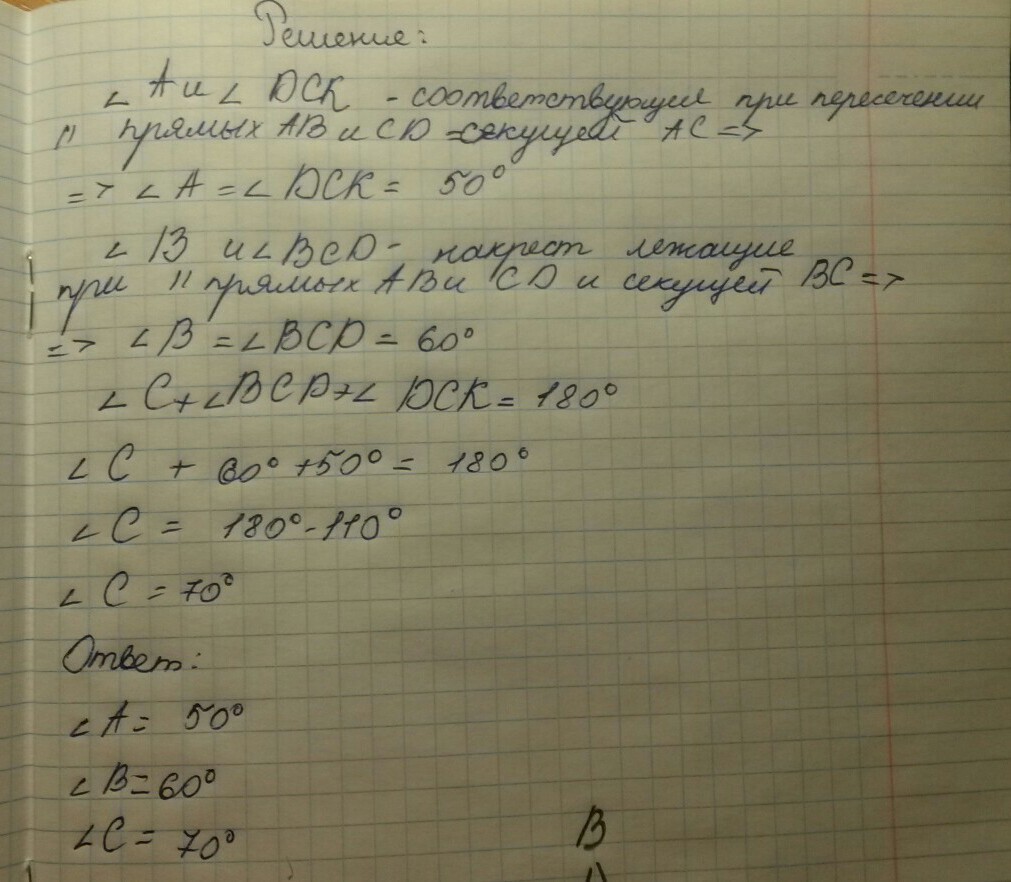 Решение:
∠ A и ∠ DCK - соответствующие при пересечении
|| прямых AB и CD секущей AC =>
=> ∠ A = ∠ DCK = 50°
∠ B и ∠ BCD - накрест лежащие
при || прямых AB и CD и секущей BC =>
=> ∠ B = ∠ BCD = 60°
∠ C + ∠ BCD + ∠ DCK = 180°
∠ C + 60° + 50° = 180°
∠ C = 180° - 110°
∠ C = 70°
Ответ:
∠ A = 50°
∠ B = 60°
∠ C = 70°
B